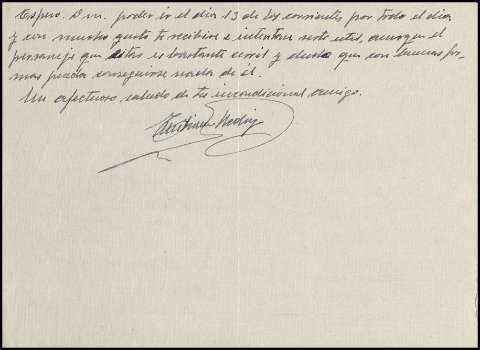 Espero D. m. poder ir el día 13 de los corrientes por todo el día
y con mucho gusto te recibiré e intentaré serte útil, aunque el
personaje que citas es bastante cerril y dudo que con buenas for-
mas pueda conseguirse nada de él.
Un afectuoso saludo de tu incondicional amigo.